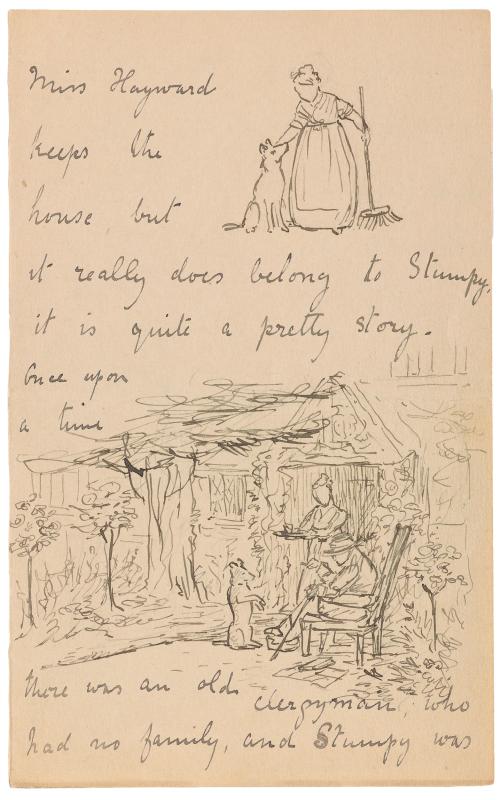 Miss Hayward
keeps the
house but
it really does belong to Stumpy,
it is quite a pretty story.
Once upon
a time
there was an old clergyman, who
had no family, and Stumpy was